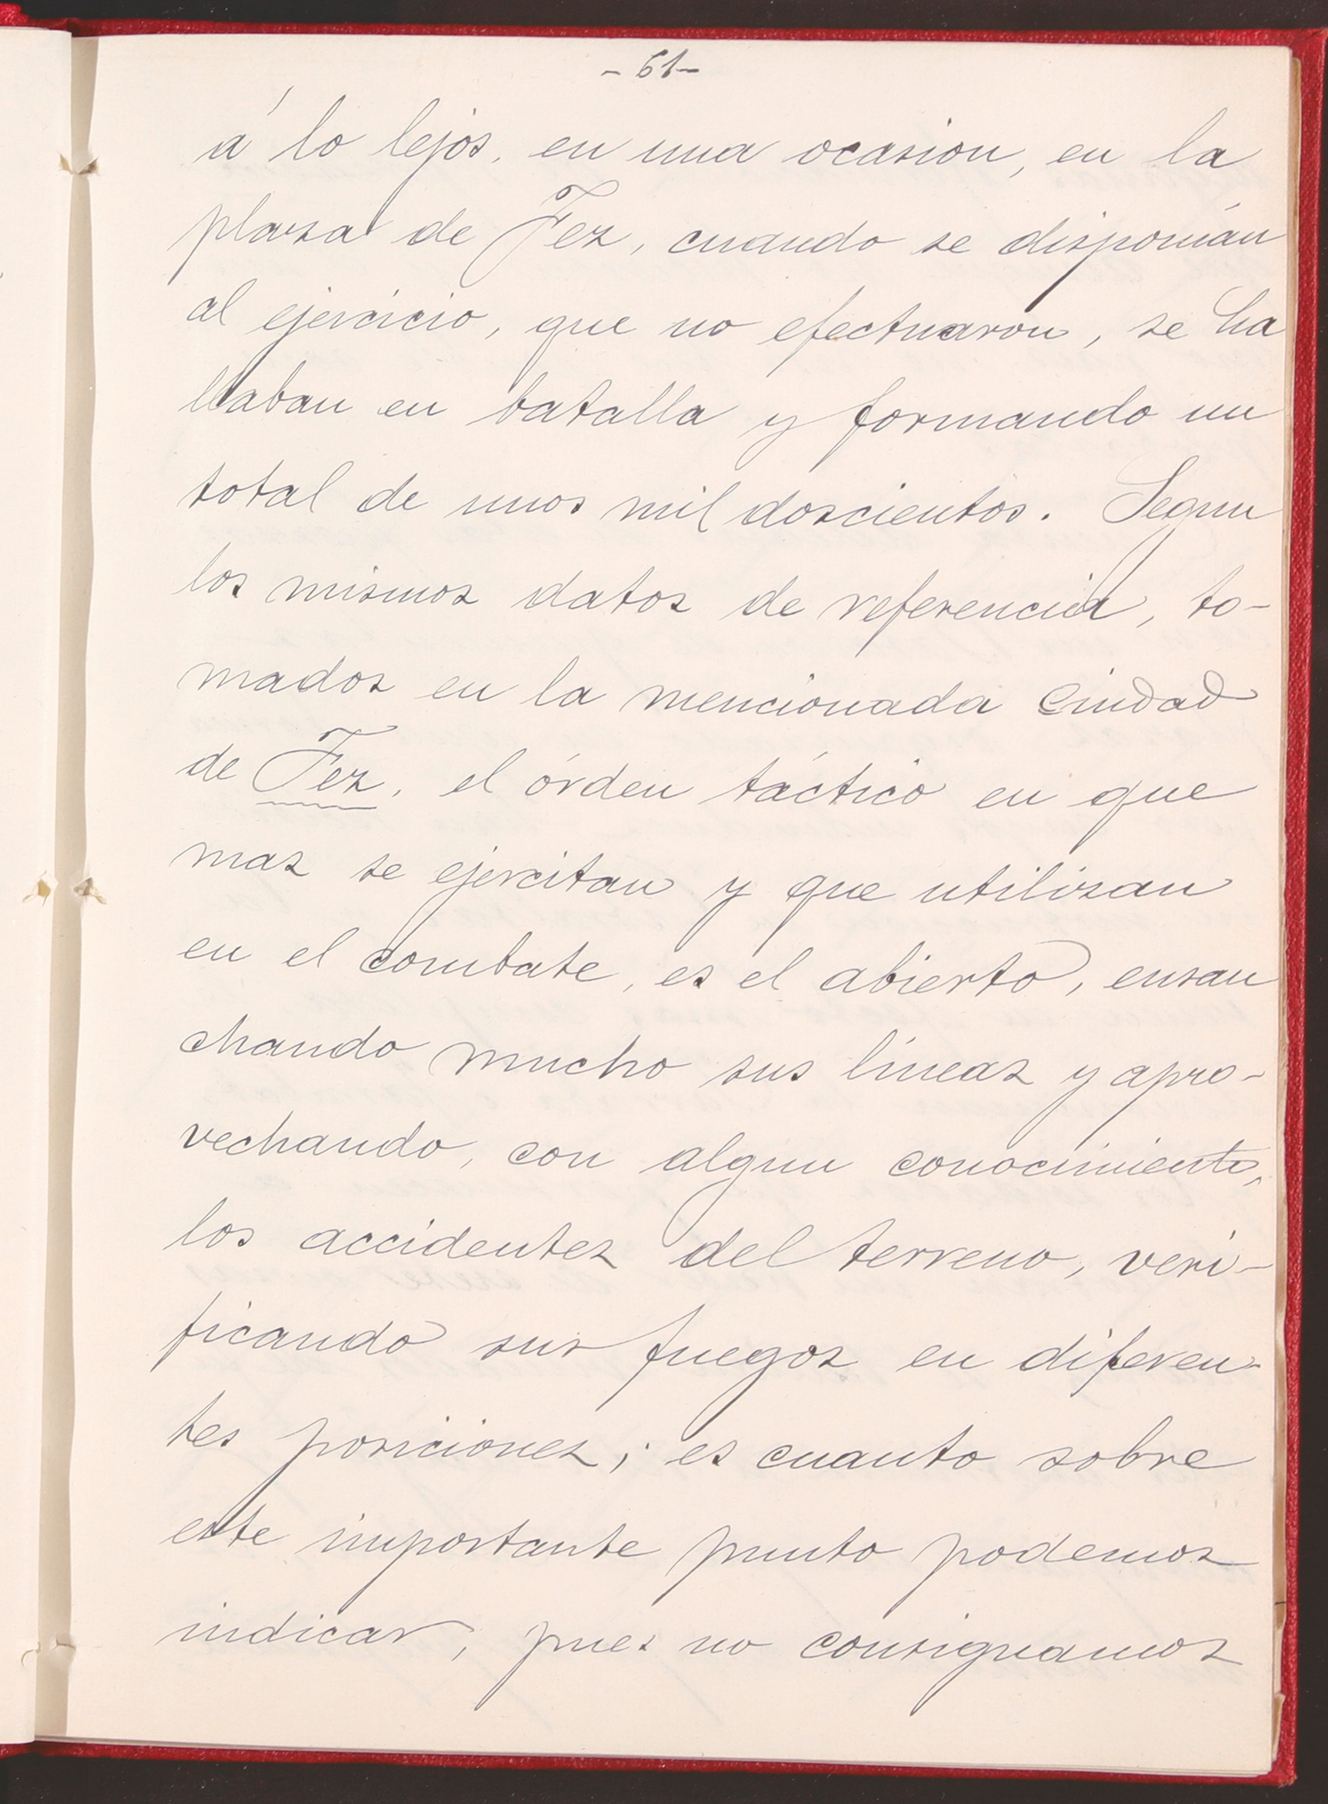 - 61 -
á lo lejos, en una ocasion, en la
plaza de Fez, cuando se disponián
al ejercicio, que no efectuaron, se ha
llaban en batalla y formando un
total de unos mil doscientos. Segun
los mismos datos de referencia, to-
mados en la mencionada Ciudad
de Fez, el órden táctico en que
mas se ejercitan y que utilizan
en el combate, es el abierto, ensan
chando mucho sus líneas y apro-
vechando, con algun conocimiento,
los accidentes del terreno, veri-
ficando sus fuegos en diferen-
tes posiciones; es cuanto sobre
este importante punto podemos
indicar, pues no consignamos